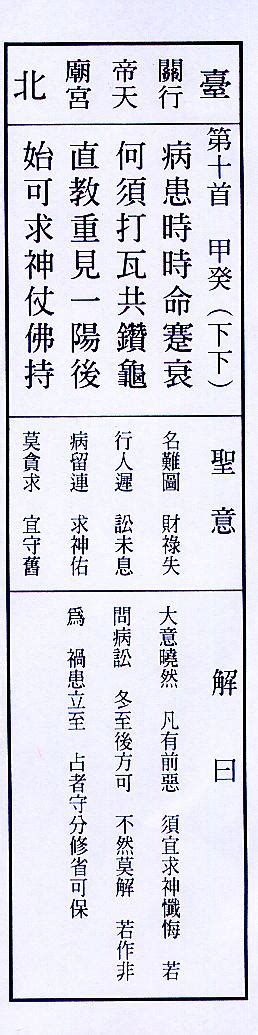 臺北
行天宮
關帝廟
第十首　甲癸（下下）
病患時時命蹇衰
何須打瓦共鑽龜
直教重見一陽後
始可求神仗佛持
聖意
名難圖　財祿失
行人遲　訟未息
病留連　求神佑
莫貪求　宜守舊
解曰
大意曉然　凡有前惡　須宜求神懺悔　若
問病訟　冬至後方可　不然莫解　若作非
為　禍患立至　占者守分修省可保